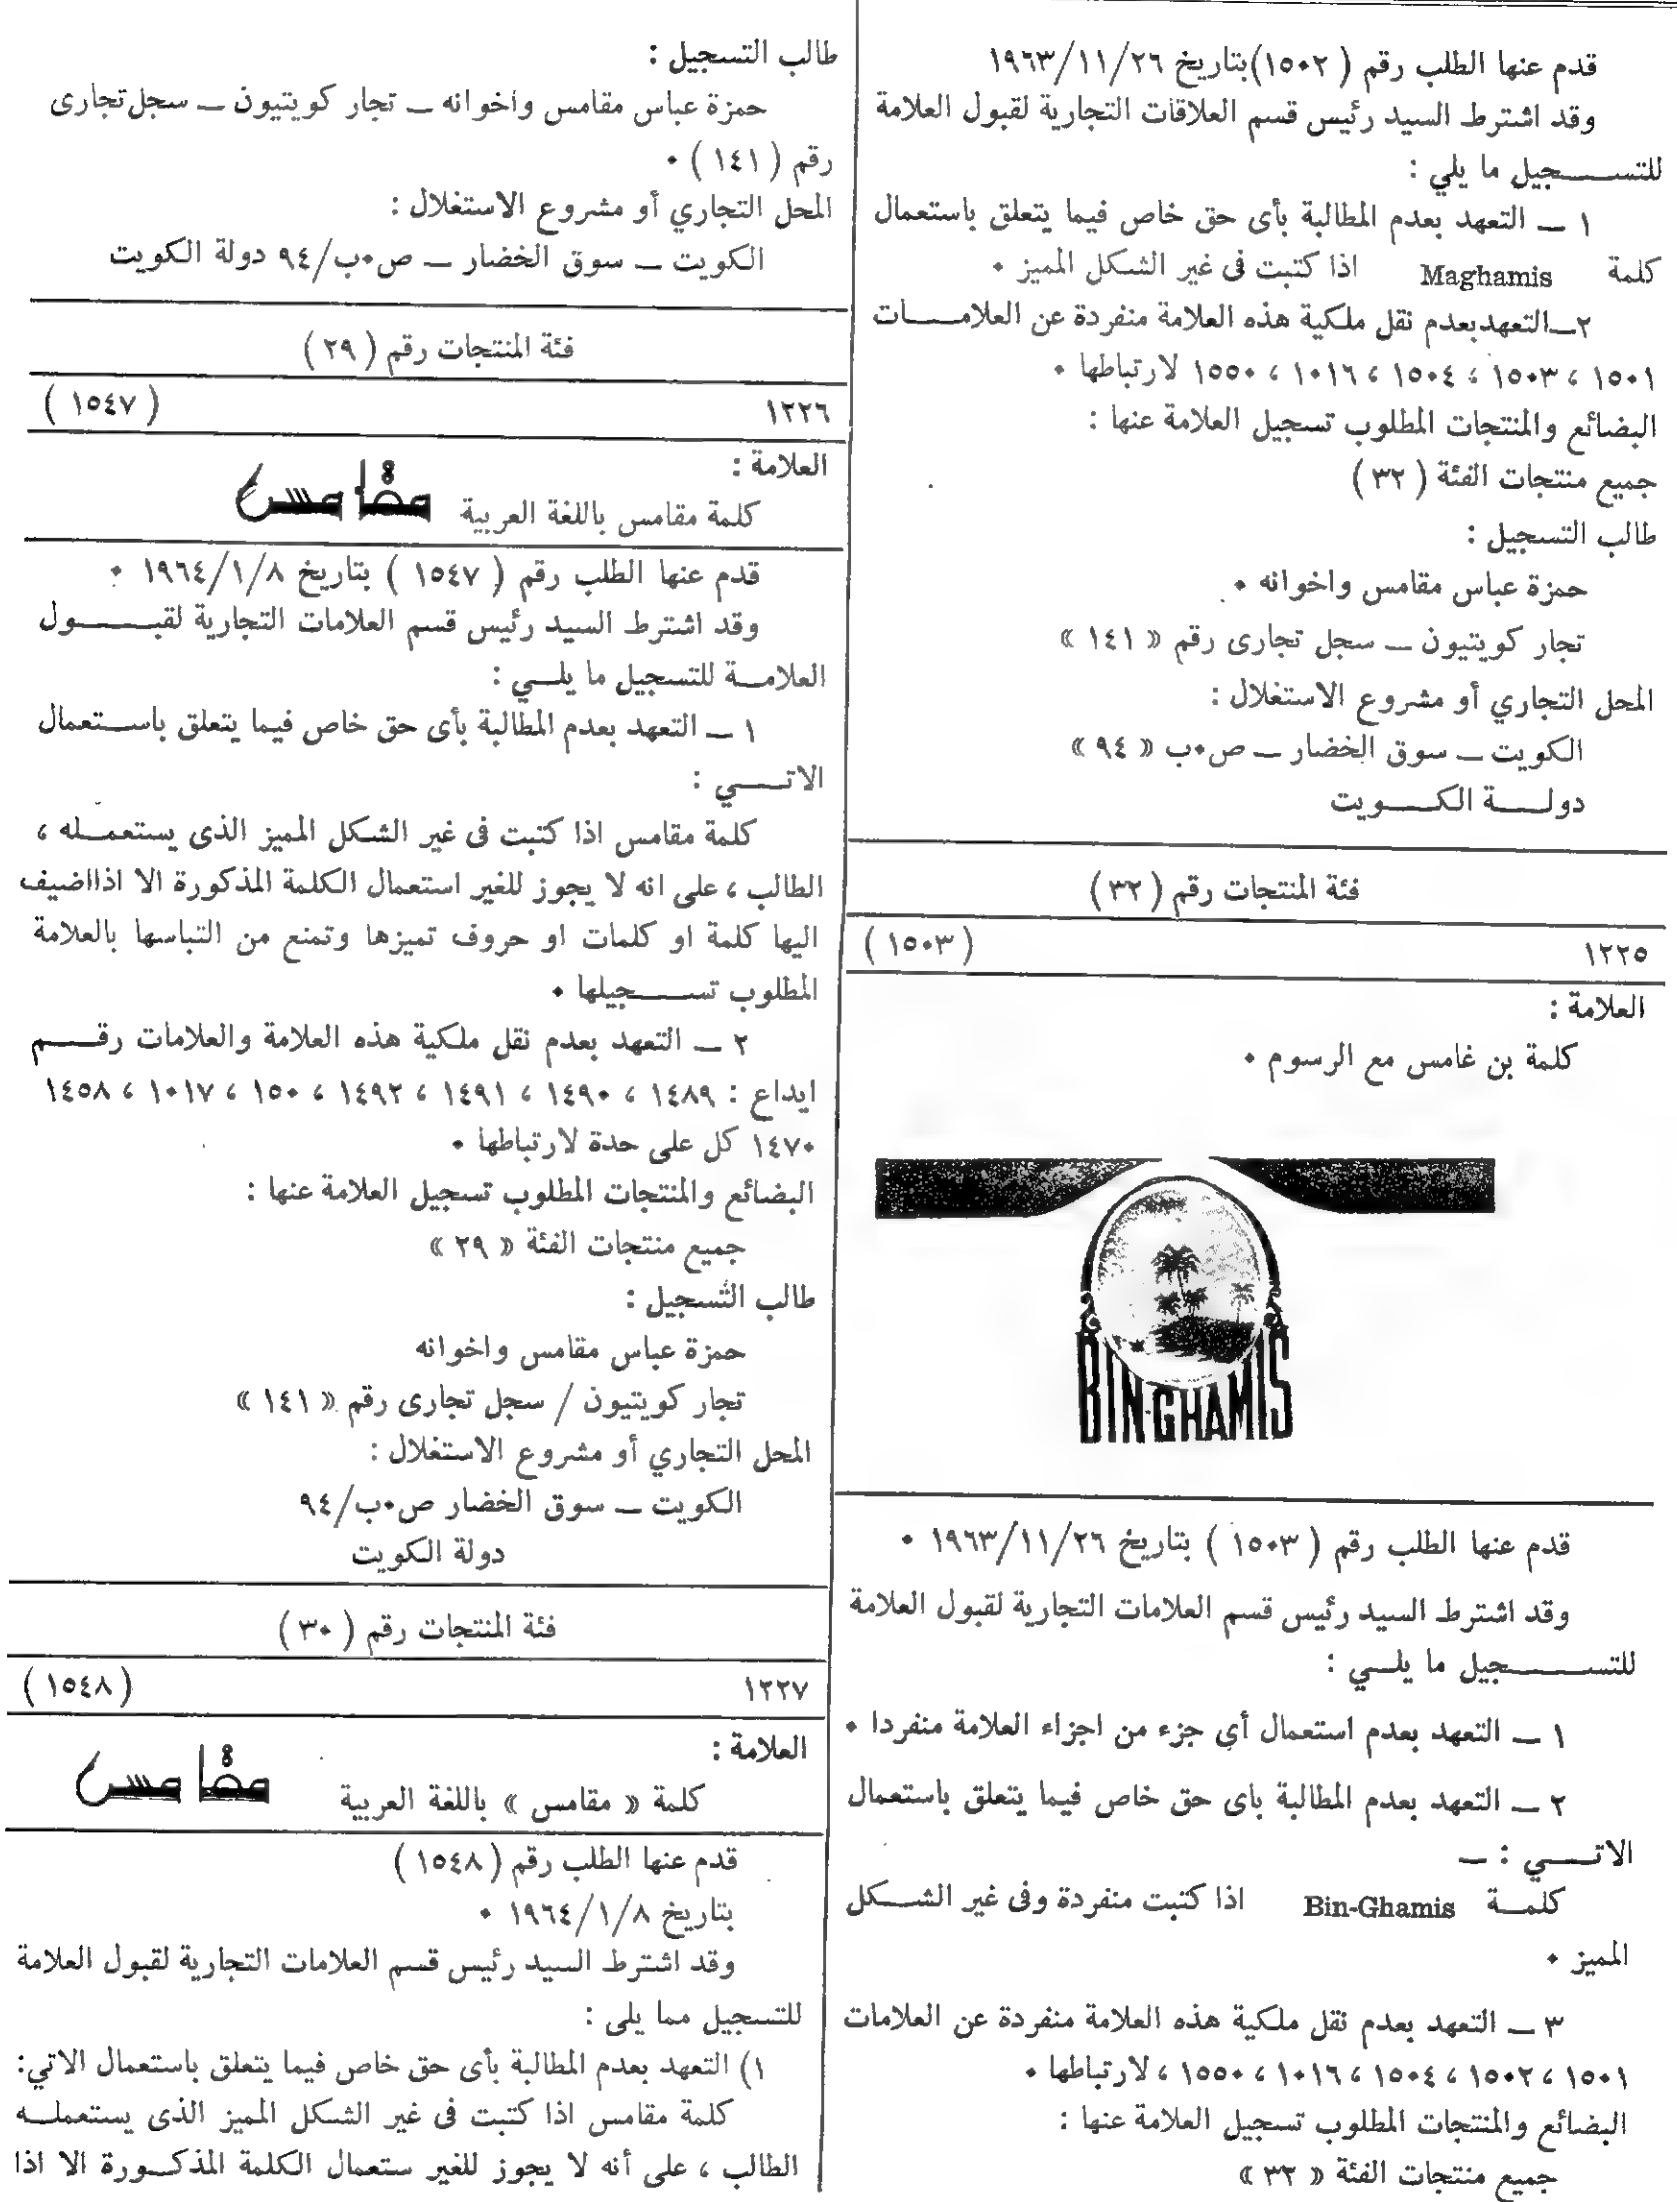 قدم عنها الطلب رقم ( ١٥٠٢)بتاريخ ١٩٦٣/١١/٢٦
وقد اشترط السيد رئيس قسم العلاقات التجارية لقبول العلامة
للتســـــجيل ما يلي :
١ — التعهد بعدم المطالبة بأى حق خاص فيما يتعلق باستعمال
كلمة Maghamis اذا كتبت فى غير الشكل المميز ٠
٢—التعهدبعدم نقل ملكية هذه العلامة منفردة عن العلامــــات
١٥٠١ ، ١٥٠٣ ، ١٥٠٤ ، ١٠١٦ ، ١٥٥٠ لارتباطها ٠
البضائع والمنتجات المطلوب تسجيل العلامة عنها :
جميع منتجات الفئة ( ٣٢ )
طالب التسجيل :
حمزة عباس مقامس واخوانه ٠
تجار كويتيون — سجل تجارى رقم « ١٤١ »
المحل التجاري أو مشروع الاستغلال :
الكويت — سوق الخضار — ص٠ب « ٩٤ »
دولـــــة الكـــــويت
فئة المنتجات رقم ( ٣٢ )
١٢٢٥ ( ١٥٠٣ )
العلامة :
كلمة بن غامس مع الرسوم ٠
BIN-GHAMIS
قدم عنها الطلب رقم ( ١٥٠٣ ) بتاريخ ١٩٦٣/١١/٢٦ ٠
وقد اشترط السيد رئيس قسم العلامات التجارية لقبول العلامة
للتســــــــجيل ما يلــي :
١ — التعهد بعدم استعمال أي جزء من اجزاء العلامة منفردا ٠
٢ — التعهد بعدم المطالبة باى حق خاص فيما يتعلق باستعمال
الاتــــي : —
كلمــة Bin-Ghamis اذا كتبت منفردة وفى غير الشــكل
المميز ٠
٣ — التعهد بعدم نقل ملكية هذه العلامة منفردة عن العلامات
١٥٠١ ، ١٥٠٢ ، ١٥٠٤ ، ١٠١٦ ، ١٥٥٠ ، لارتباطها ٠
البضائع والمنتجات المطلوب تسجيل العلامة عنها :
جميع منتجات الفئة « ٣٢ »
طالب التسجيل :
حمزة عباس مقامس واخوانه — تجار كويتيون — سجل تجارى
رقم ( ١٤١ ) ٠
المحل التجاري أو مشروع الاستغلال :
الكويت — سوق الخضار — ص٠ب/٩٤ دولة الكويت
فئة المنتجات رقم ( ٢٩ )
١٢٢٦ ( ١٥٤٧ )
العلامة :
كلمة مقامس باللغة العربية مقامس
قدم عنها الطلب رقم ( ١٥٤٧ ) بتاريخ ١٩٦٤/١/٨ ٠
وقد اشترط السيد رئيس قسم العلامات التجارية لقبـــــول
العلامــة للتسجيل ما يلــي :
١ — التعهد بعدم المطالبة بأى حق خاص فيما يتعلق باســتعمال
الاتــــي :
كلمة مقامس اذا كتبت فى غير الشكل المميز الذى يستعمــله ،
الطالب ، على انه لا يجوز للغير استعمال الكلمة المذكورة الا اذااضيف
اليها كلمة او كلمات او حروف تميزها وتمنع من التباسها بالعلامة
المطلوب تســـــجيلها ٠
٢ — التعهد بعدم نقل ملكية هذه العلامة والعلامات رقـــم
ايداع : ١٤٨٩ ، ١٤٩٠ ، ١٤٩١ ، ١٤٩٢ ، ١٥٠ ، ١٠١٧ ، ١٤٥٨
١٤٧٠ كل على حدة لارتباطها ٠
البضائع والمنتجات المطلوب تسجيل العلامة عنها :
جميع منتجات الفئة « ٢٩ »
طالب التسجيل :
حمزة عباس مقامس واخوانه
تجار كويتيون / سجل تجارى رقم « ١٤١ »
المحل التجاري أو مشروع الاستغلال :
الكويت — سوق الخضار ص٠ب/٩٤
دولة الكويت
فئة المنتجات رقم ( ٣٠ )
١٢٢٧ ( ١٥٤٨ )
العلامة :
كلمة « مقامس » باللغة العربية مقامس
قدم عنها الطلب رقم ( ١٥٤٨ )
بتاريخ ١٩٦٤/١/٨ ٠
وقد اشترط السيد رئيس قسم العلامات التجارية لقبول العلامة
للتسجيل مما يلى :
١) التعهد بعدم المطالبة بأى حق خاص فيما يتعلق باستعمال الاتي:
كلمة مقامس اذا كتبت فى غير الشكل المميز الذى يستعملــه
الطالب ، على أنه لا يجوز للغير ستعمال الكلمة المذكــورة الا اذا